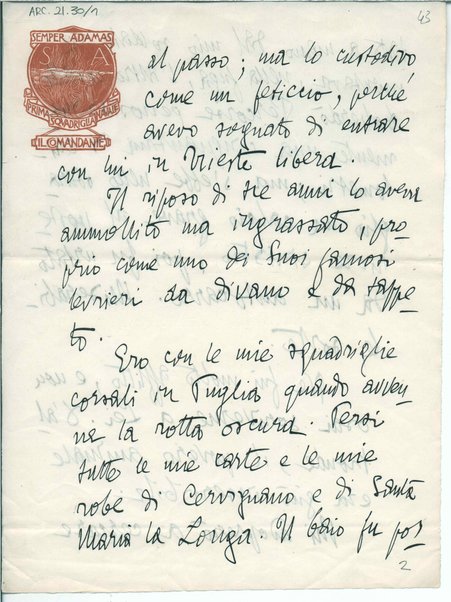 ARC. 21.30/1
43
SEMPER ADAMAS
S A
PRIMA SQUADRIGLIA NAVALE
IL COMANDANTE
al passo; ma lo custodivo
come un feticcio, perché
avevo sognato di entrare
con lui in Trieste libera
Il riposo di tre anni lo aveva
ammollito ma ingrassato, pro-
prio come uno dei Suoi famosi
levrieri da divano e da tappe-
to.
Ero con le mie squadriglie
corsali in Puglia quando avven-
ne la rotta oscura. Persi
tutte le mie carte e le mie
robe di Cervignano e di Santa
Maria la Longa. Il baio fu por
2